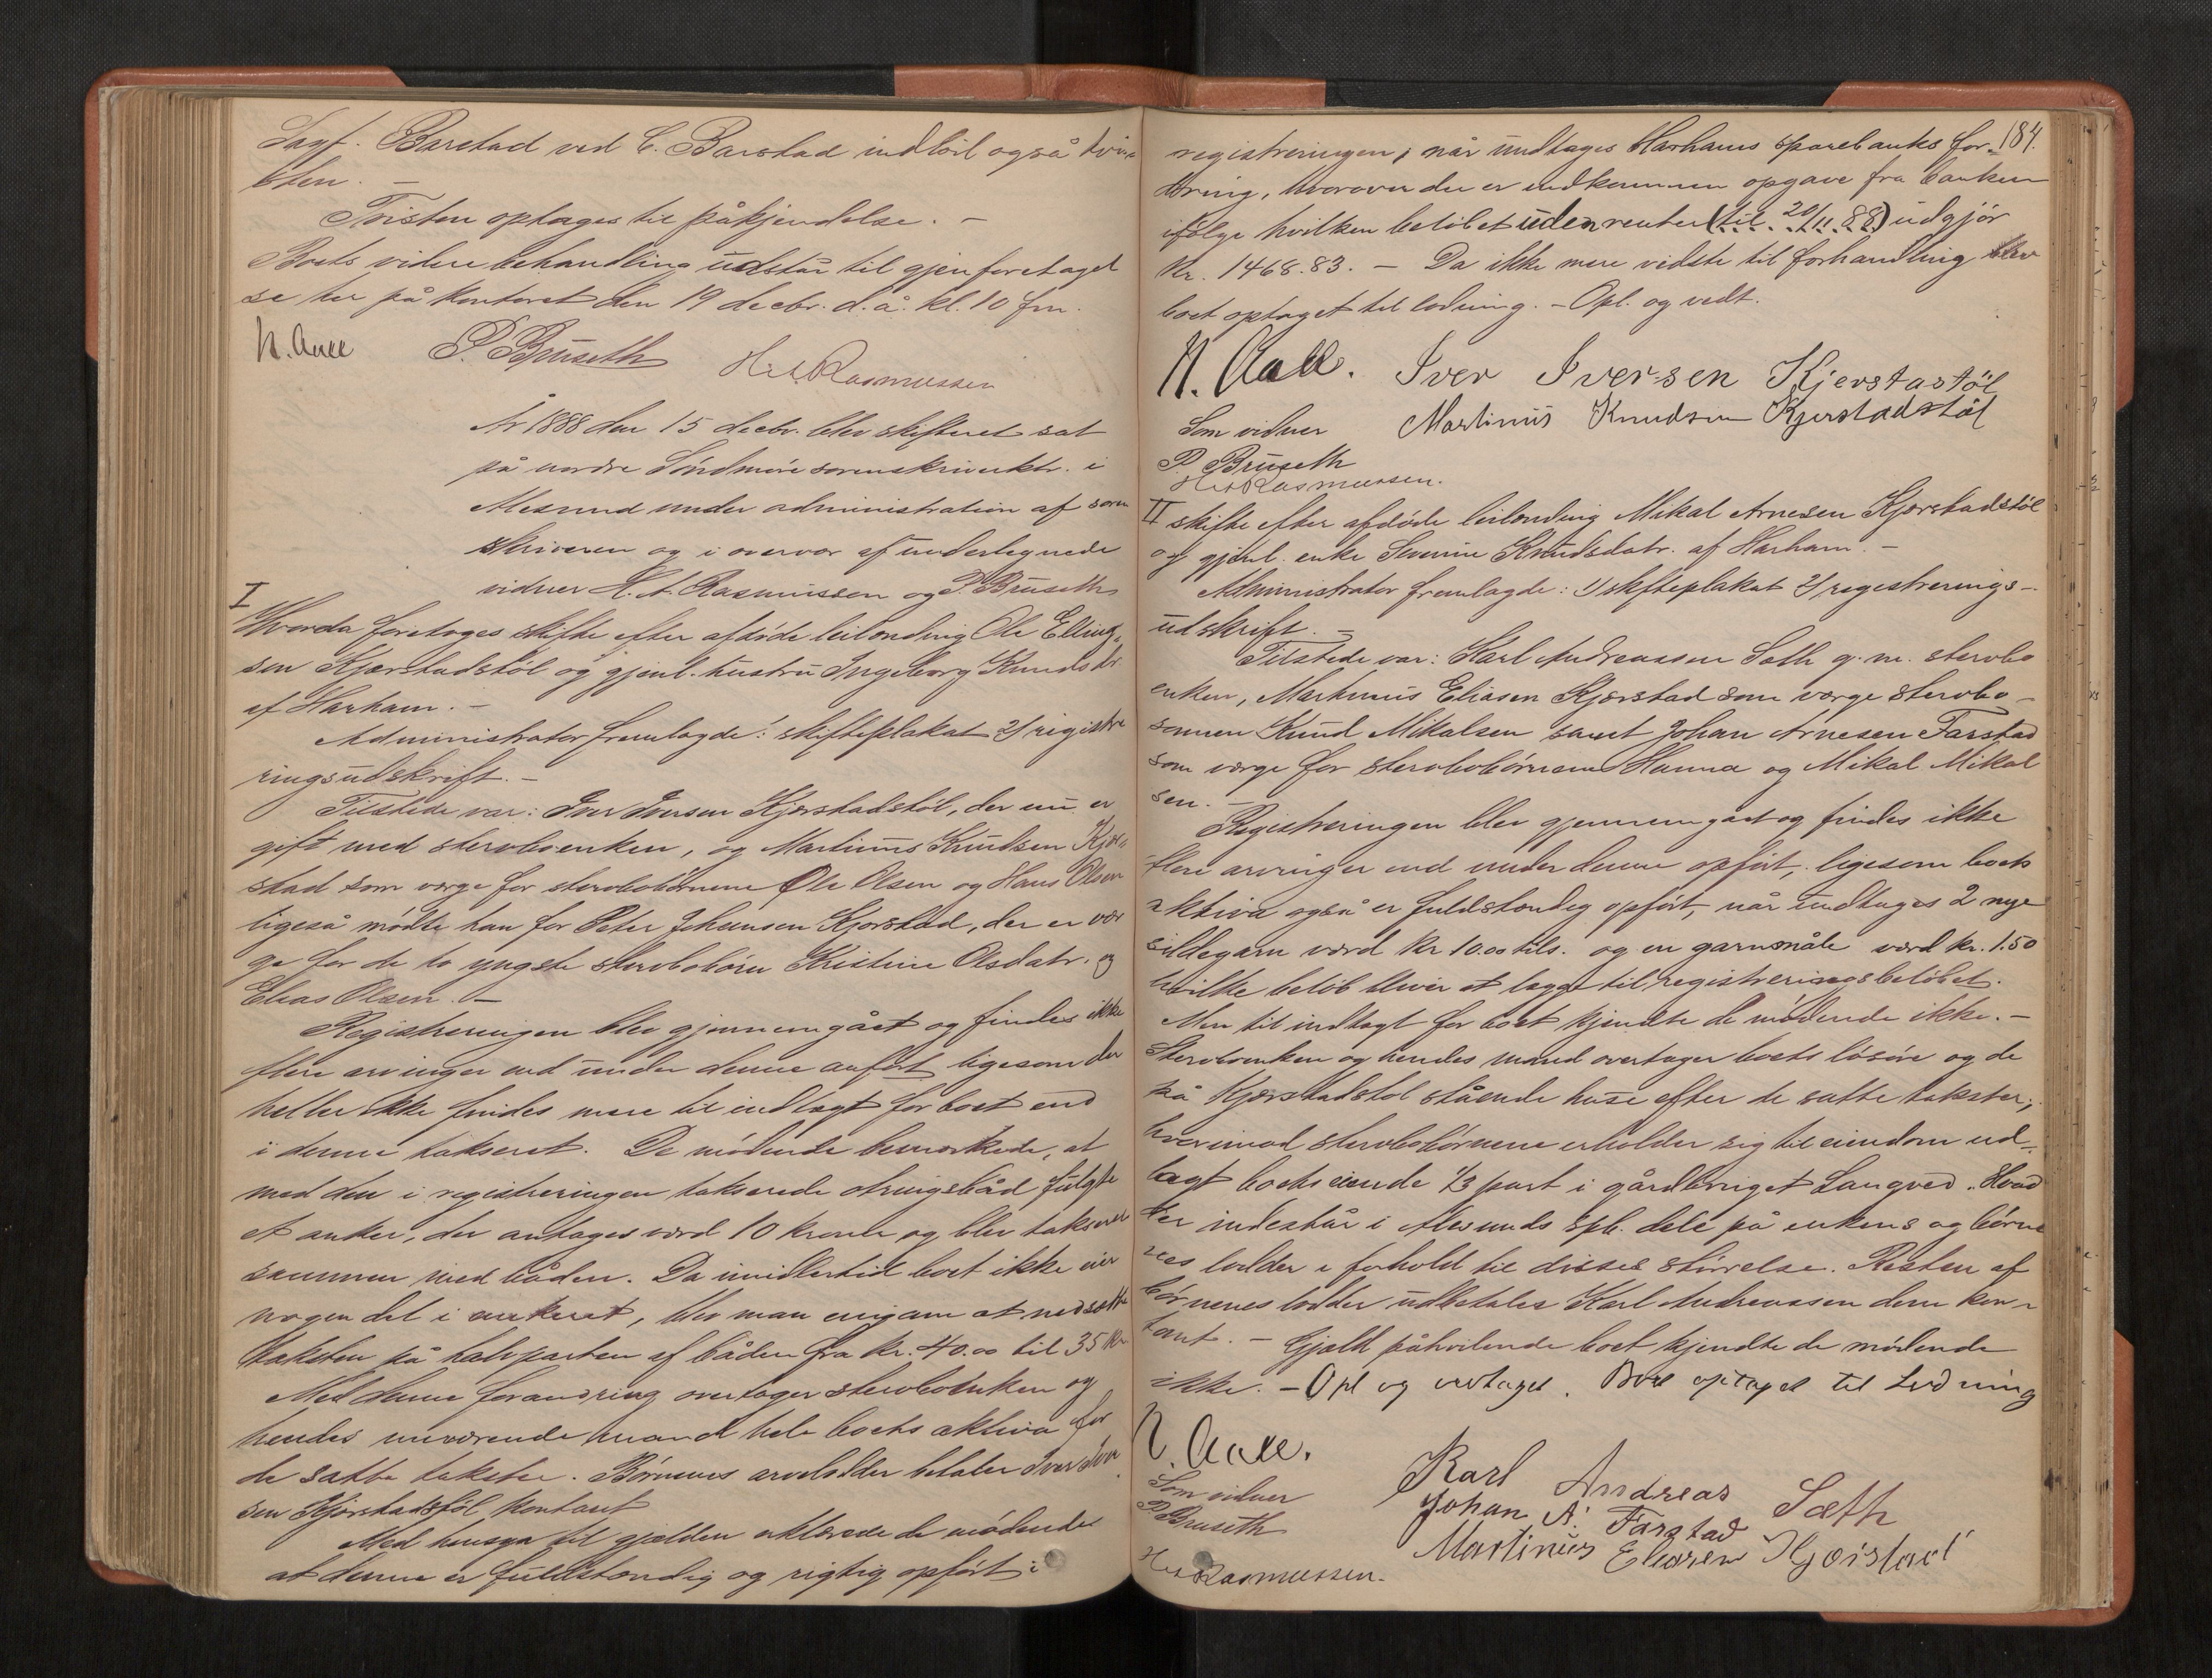 Sagf. Barstad ved C. Barstad indlod også tvi-
sten. -
Tvisten optages til påkjendelse. -
Boets videre behandling udstår til gjenforetagel
se her på kontoret den 19 decbr. d.å. kl. 10 fm.
N. Aall P. Bruseth H. A. Rasmussen
År 1888 den 15 decbr. blev skifteret sat
på nordre Söndmöre sorenskriverktr. i
Ålesund under administration af soren
skriveren og i overvær af undertegnede
vidner H. A. Rasmussen og P. Bruseth
I
Hvorda foretoges skifte efter afdöde leilænding Ole Elling-
sen Kjærstadstöl og gjenl. hustru Ingeborg Knudsdtr.
af Harham. -
Administrator fremlagde: skifteplakat 2/ registre
ringsudskrift. -
Tilstede var: Iver Iversen Kjærstadstöl, der nu er
gift med stervboenken, og Martinus Knudsen Kjær-
stad som værge for stervbobörnene Ole Olsen og Hans Olsen
ligeså mödte han for Peter Johansen Kjærstad, der er vær
ge for de to yngste stervbobörn Kristine Olsdatr. og
Elias Olsen. -
Registreringen blev gjennemgået og findes ikke
flere arvinger end under denne anfört ligesom der
heller ikke findes mere til indtægt for boet end
i denne takseret. De mödende bemærkede, at
med den i registreringen takserede otringsbåd fulgte
et anker, der antages værd 10 kroner og blev takseret
sammen med båden. Da imidlertid boet ikke eier
nogen del i ankeret, blev man enig om at nedsætte
taksten på halvparten af båden fra kr. 40.00 til 35 kr.
Med denne forandring overtager stervboenken og
hendes nuværende mand hele boets aktiva for
de satte takster. Börnenes arvelodder betaler Iver Iver
sen Kjærstadstöl kontant
Med hensyn til gjælden erklærede de mödende
at denne er fuldstændig og rigtig opfört i
184.
registreringen, når undtages Harhams sparebanks for-
dring, hvorover der er indkommen opgave fra banken
ifölge hvilken belöbet uden renter (til 20/11 88) udgjör
Kr. 1468.83. - Da ikke mere vidste til forhandling blev
boet optaget til lodning. - Opl. og vedt.
N. Aall. Iver Iversen Kjerstastöl
Som vidner Martinus Knudsen Kjerstadstöl
P. Bruseth
H. A. Rasmussen.
II skifte efter afdöde leilænding Mikal Arnesen Kjærstadstöl
og gjenl. enke Severine Knudsdatr. af Harham. -
Administrator fremlagde: 1) skifteplakat 2/ registrerings-
udskrift. -
Tilstede var: Karl Andreassen Sæth g. m. stervbo
enken, Martinus Eliasen Kjærstad som værge stervbo-
sönnen Knud Mikalsen samt Johan Arnesen Farstad
som værge for stervbobörnene Hanna og Mikal Mikal
sen. -
Registreringen blev gjennemgået og findes ikke
flere arvinger end under denne opfört, ligesom boets
aktiva også er fuldstændig opfört, når undtages 2 nye
sildegarn værd kr 10.00 tils. og en garnsnåle værd kr. 1.50
hvilke belöb bliver at lægge til registreringsbelöbet.
Mer til indtægt for boet kjendte de mödende ikke. -
Stervboenken og hendes mand overtager boets lösöre og de
på Kjærstadstöl stående huse efter de satte takster,
hvorimod stervbobörnene erholder sig til eiendom ud-
lagt boets eiende 1/3 part i gårdbruget Langved. Hvad
der indestår i Ålesunds spb. dele på enkens og börne
nes lodder i forhold til disses störrelse. Resten af
börnenes lodder udbetales Karl Andreassen dem kon-
tant. - Gjæld påhvilende boet kjendte de mödende
ikke. - Opl og vedtaget. Boet optaget til Lodning
N. Aall. Karl Andreas Sæth
Som vidner Johan A. Farstad
P. Bruseth Martinus Eliasen Kjærstad
H. A. Rasmussen.